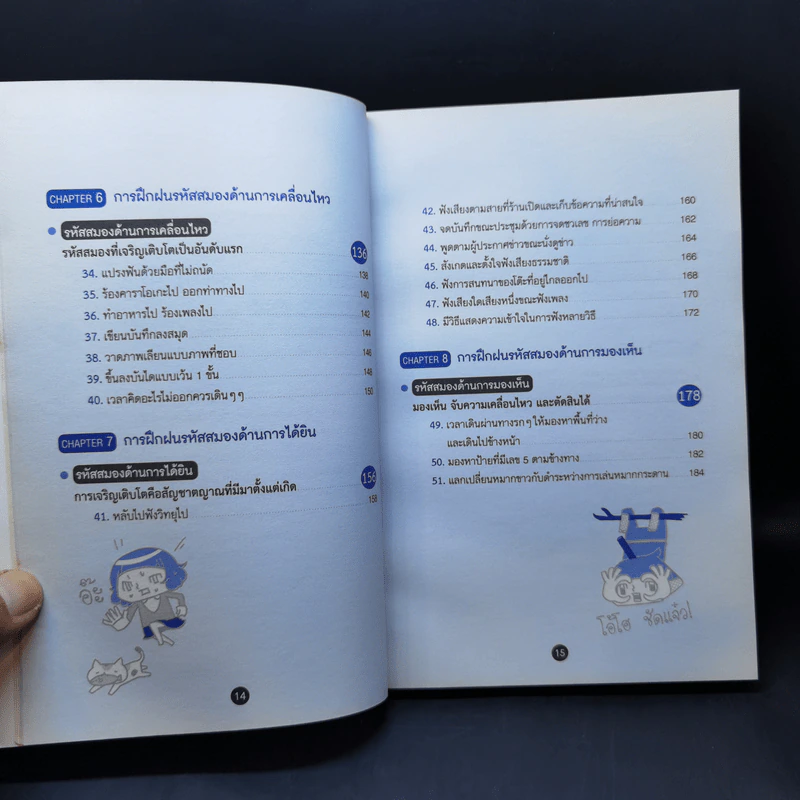 CHAPTER 6 การฝึกฝนรหัสสมองด้านการเคลื่อนไหว
รหัสสมองด้านการเคลื่อนไหว
รหัสสมองที่เจริญเติบโตเป็นอันดับแรก 136
34. แปรงฟันด้วยมือที่ไม่ถนัด 138
35. ร้องคาราโอเกะไป ออกท่าทางไป 140
36. ทำอาหารไป ร้องเพลงไป 142
37. เขียนบันทึกลงสมุด 144
38. วาดภาพเลียนแบบภาพที่ชอบ 146
39. ขึ้นลงบันไดแบบเว้น 1 ขั้น 148
40. เวลาคิดอะไรไม่ออกควรเดินๆๆ 150
CHAPTER 7 การฝึกฝนรหัสสมองด้านการได้ยิน
รหัสสมองด้านการได้ยิน
การเจริญเติบโตคือสัญชาตญาณที่มีมาตั้งแต่เกิด 156
41. หลับไปฟังวิทยุไป 158
อ๊ะ
14
42. ฟังเสียงตามสายที่ร้านเปิดและเก็บข้อความที่น่าสนใจ 160
43. จดบันทึกขณะประชุมด้วยการจดชวเลข การย่อความ 162
44. พูดตามผู้ประกาศข่าวขณะนั่งดูข่าว 164
45. สังเกตและตั้งใจฟังเสียงธรรมชาติ 166
46. ฟังการสนทนาของโต๊ะที่อยู่ไกลออกไป 168
47. ฟังเสียงใดเสียงหนึ่งขณะฟังเพลง 170
48. มีวิธีแสดงความเข้าใจในการฟังหลายวิธี 172
CHAPTER 8 การฝึกฝนรหัสสมองด้านการมองเห็น
รหัสสมองด้านการมองเห็น
มองเห็น จับความเคลื่อนไหว และตัดสินได้ 178
49. เวลาเดินผ่านทางรกๆ ให้มองหาพื้นที่ว่าง
และเดินไปข้างหน้า 180
50. มองหาป้ายที่มีเลข 5 ตามข้างทาง 182
51. แลกเปลี่ยนหมากขาวกับดำระหว่างการเล่นหมากกระดาน 184
โอ้โฮ ชัดแจ๋ว!
15